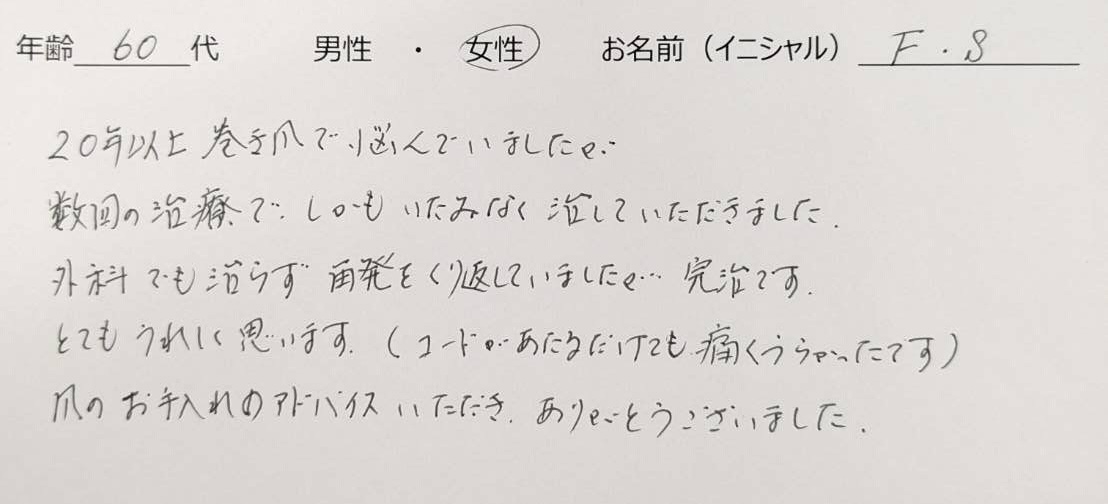 年齢 60 代 男性 ・ 女性 お名前（イニシャル） F・S
20年以上 巻き爪で悩んでいましたが
数回の治療で、しかも いたみなく 治していただきました.
外科でも治らず 再発をくり返していましたが… 完治です.
とても うれしく思います. (コードがあたるだけでも 痛くつらかったです)
爪の お手入れのアドバイス いただき. ありがとうございました.